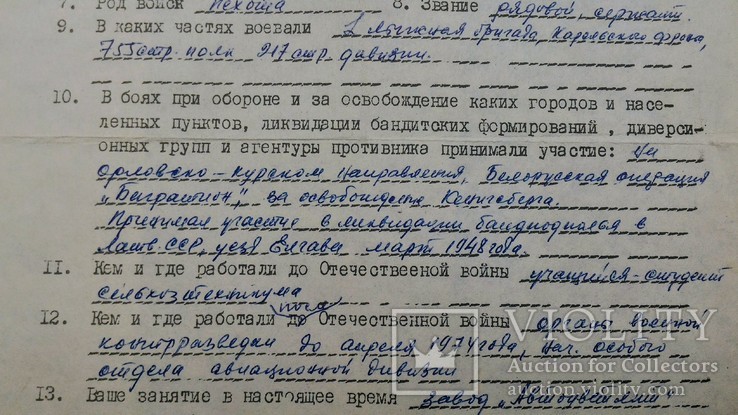 7. Род войск пехота 8. Звание рядовой, сержант.
9. В каких частях воевали 2 лыжная бригада Карельского фронта,
755 стр. полк 217 стр. дивизии.
10. В боях при обороне и за освобождение каких городов и насе-
ленных пунктов, ликвидации бандитских формирований , диверси-
онных групп и агентуры противника принимали участие: На
Орловско-Курском направлении, Белорусская операция
"Багратион", за освобождение Кенигсберга.
Принимал участие в ликвидации бандподполья в
Латв. ССР, уезд Елгава март 1948 года.
11. Кем и где работали до Отечествееной войны учащийся-студент
сельхозтехникума
после
12. Кем и где работали до Отечественной войны органы военной
контрразведки до апреля 1974 года, нач. особого
отдела авиационной дивизии
13. Ваше занятие в настоящее время завод
VIOLITY
Auction for Collectors
auction.violity.com